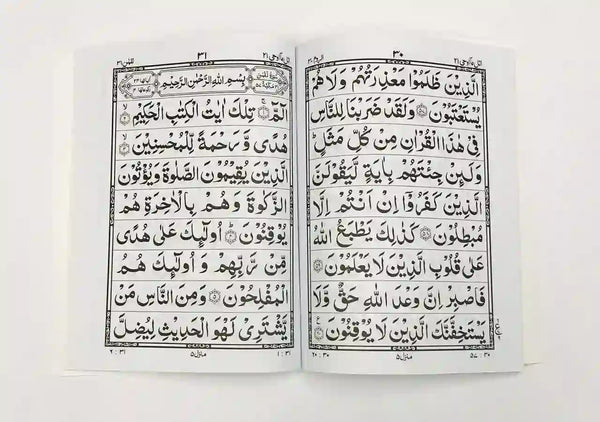 ٣٠
الَّذِيْنَ ظَلَمُوْا مَعْذِرَتُهُمْ وَلَا هُمْ
يُسْتَعْتَبُوْنَ ۝ وَلَقَدْ ضَرَبْنَا لِلنَّاسِ
فِيْ هٰذَا الْقُرْاٰنِ مِنْ كُلِّ مَثَلٍ ؕ
وَلَئِنْ جِئْتَهُمْ بِاٰيَةٍ لَّيَقُوْلَنَّ
الَّذِيْنَ كَفَرُوْۤا اِنْ اَنْتُمْ اِلَّا
مُبْطِلُوْنَ ۝ كَذٰلِكَ يَطْبَعُ اللّٰهُ
عَلٰى قُلُوْبِ الَّذِيْنَ لَا يَعْلَمُوْنَ ۝
فَاصْبِرْ اِنَّ وَعْدَ اللّٰهِ حَقٌّ وَّلَا
يَسْتَخِفَّنَّكَ الَّذِيْنَ لَا يُوْقِنُوْنَ ۝
٣٠ : ٥٧
منزل ٥
٣٠ : ٢٠
٣١
بِسْمِ اللّٰهِ الرَّحْمٰنِ الرَّحِيْمِ
الٓمّٓ ۝ تِلْكَ اٰيٰتُ الْكِتٰبِ الْحَكِيْمِ ۝
هُدًى وَّرَحْمَةً لِّلْمُحْسِنِيْنَ ۝
الَّذِيْنَ يُقِيْمُوْنَ الصَّلٰوةَ وَيُؤْتُوْنَ
الزَّكٰوةَ وَهُمْ بِالْاٰخِرَةِ هُمْ
يُوْقِنُوْنَ ۝ اُولٰٓئِكَ عَلٰى هُدًى
مِّنْ رَّبِّهِمْ وَاُولٰٓئِكَ هُمُ
الْمُفْلِحُوْنَ ۝ وَمِنَ النَّاسِ مَنْ
يَّشْتَرِيْ لَهْوَ الْحَدِيْثِ لِيُضِلَّ
٣١ : ١
منزل ٥
٣١ : ٢